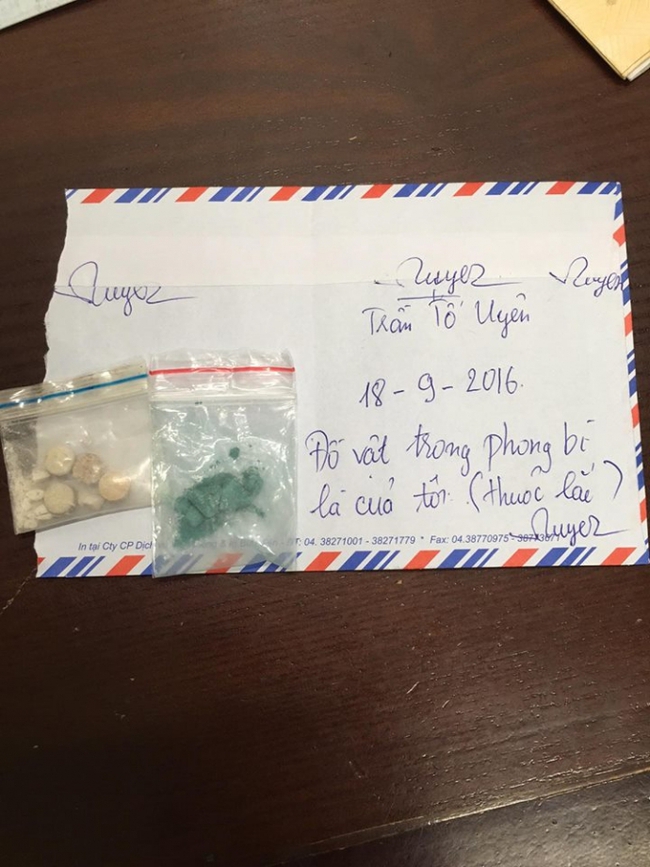 Trần Tố Uyên
18 - 9 - 2016.
Đồ vật trong phong bì
là của tôi. (thuốc lắc)
In tại Cty CP Dịch ĐT: 04. 38271001 - 38271779 * Fax: 04.38770975 -